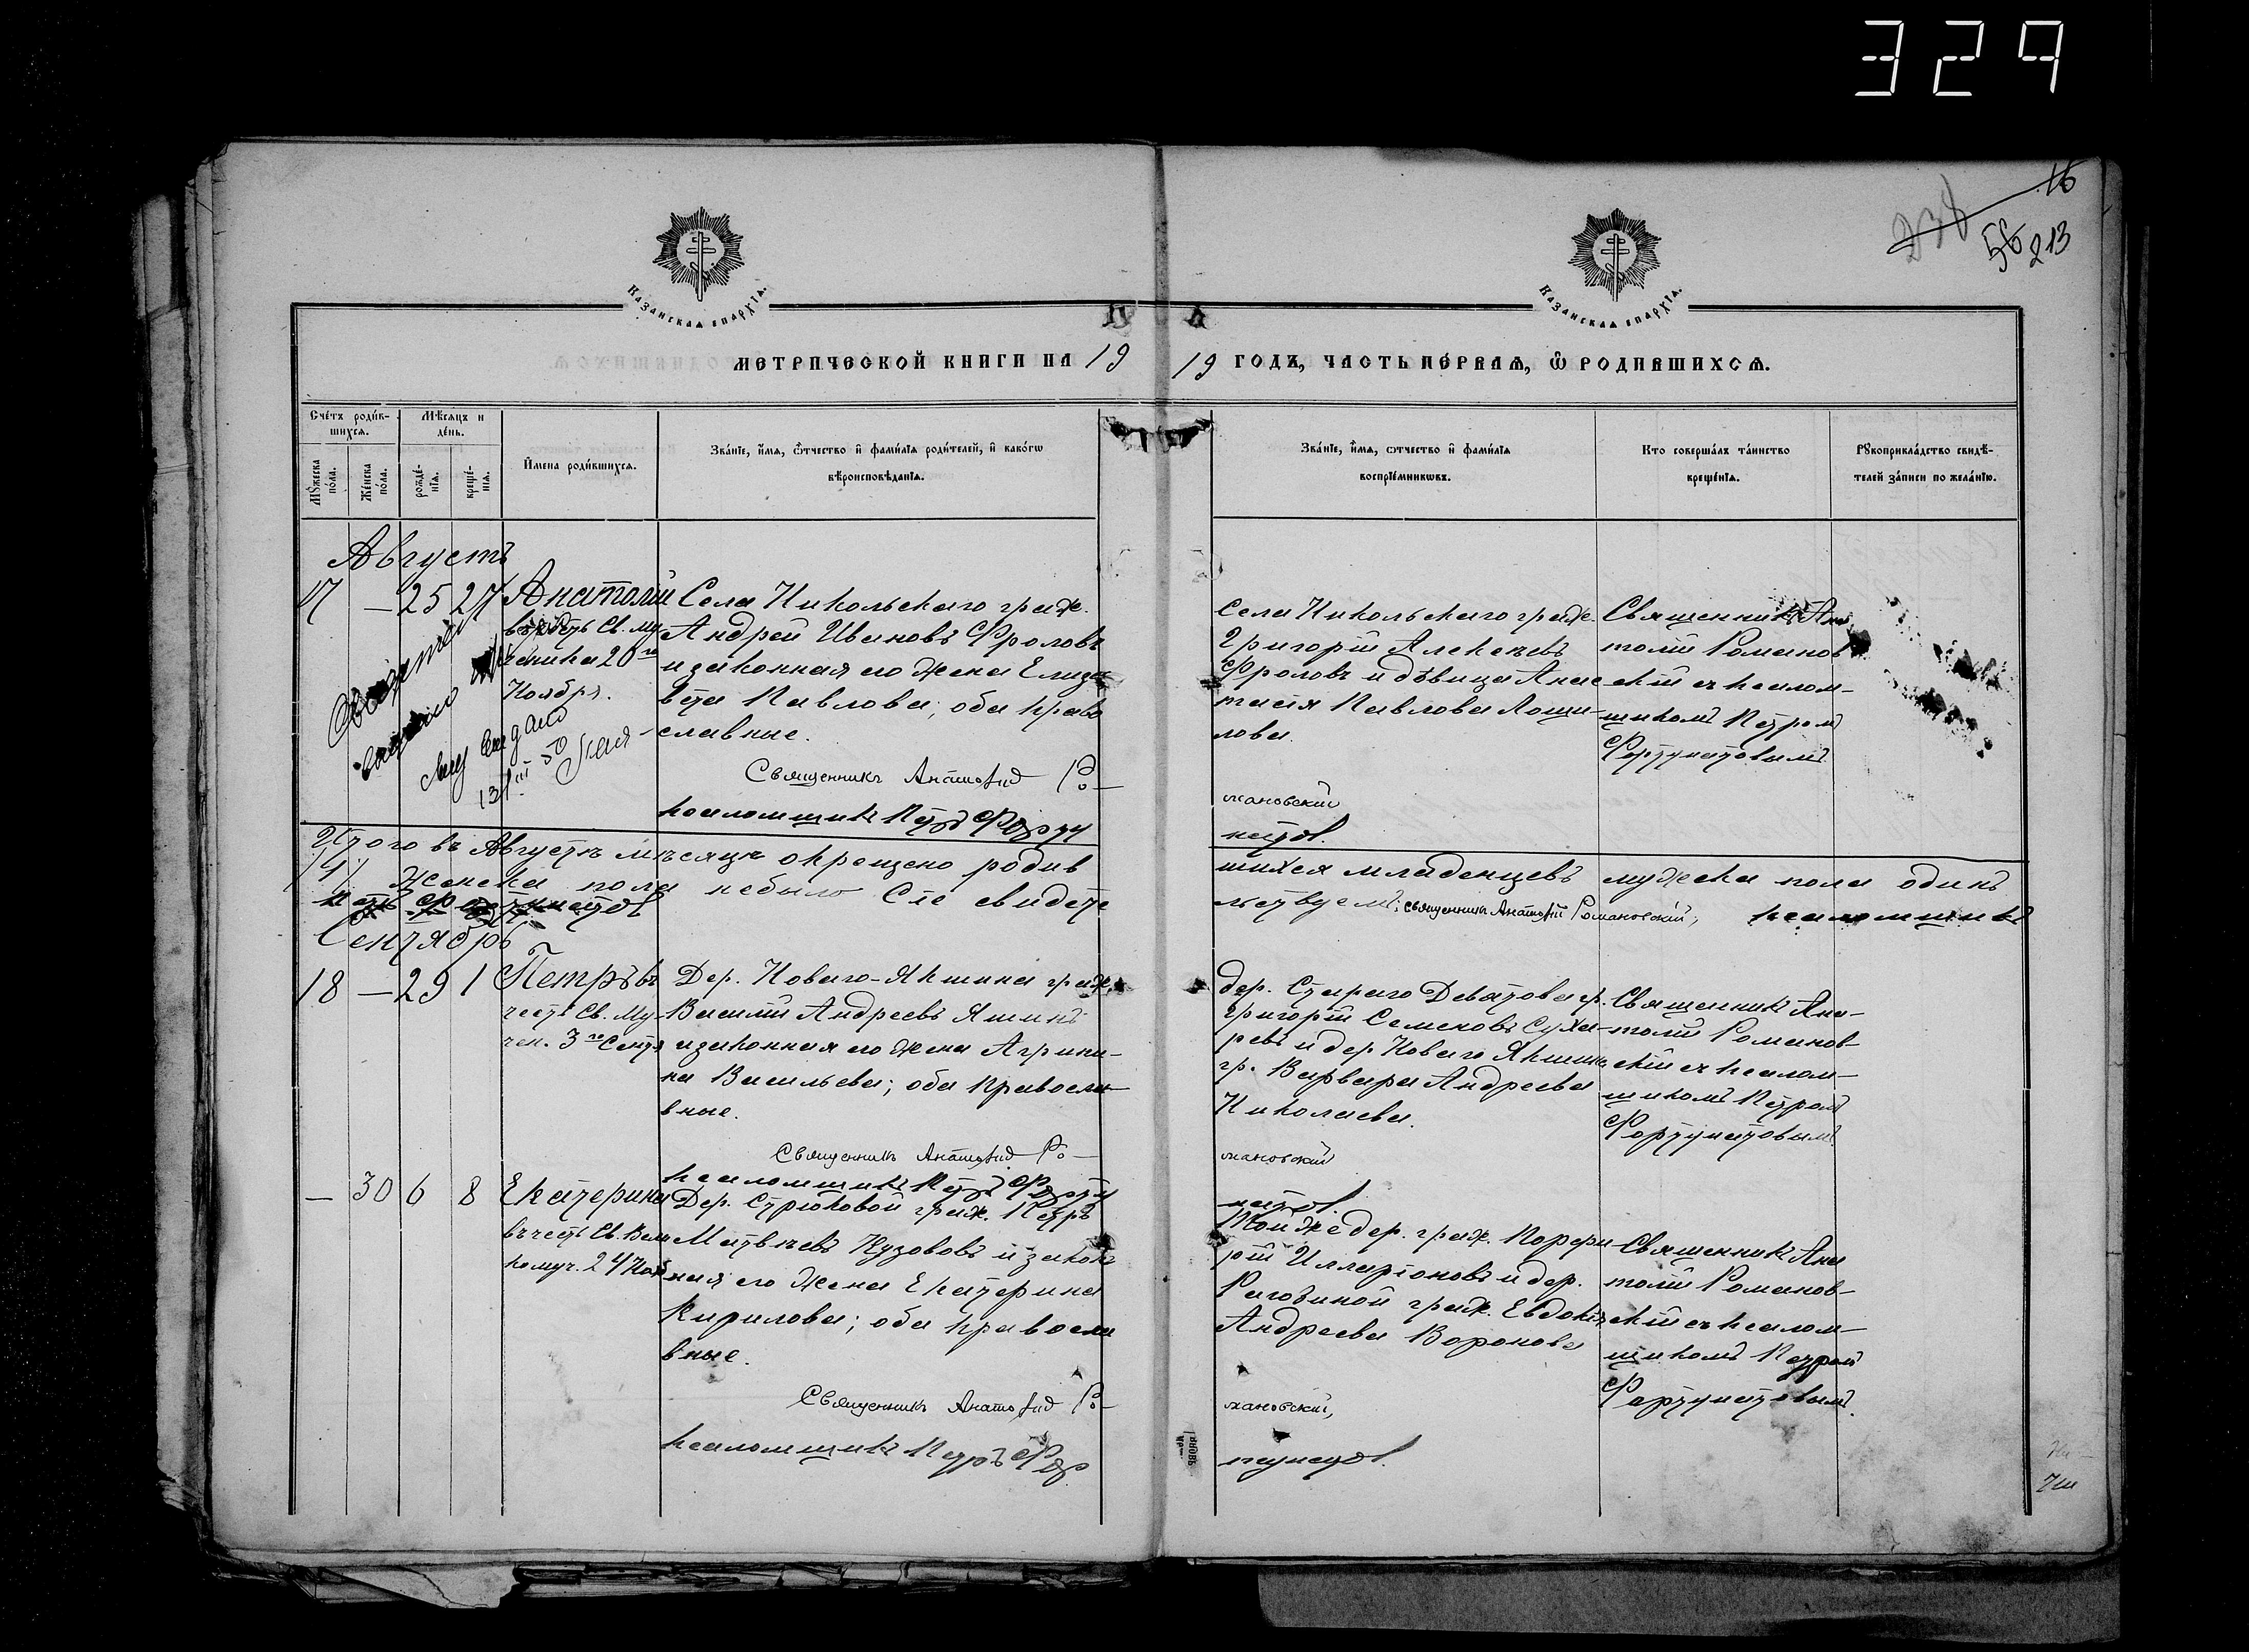 329
16
238
56 213
КАЗАНСКАѦ ЕПАРХІѦ.
КАЗАНСКАѦ ЕПАРХІѦ.
МЕТРИЧЕСКОЙ КНИГИ НА 19
19 ГОДЪ, ЧАСТЬ ПЕРВАѦ, Ѿ РОДИВШИХСѦ.
Счетъ родив-
шихсѧ.
Мꙋжеска
пола.
Женска
пола.
Мѣсѧцъ и
день.
рожде-
нїѧ.
креще-
нїѧ.
Имена родившихсѧ.
Званїе, имѧ, ѿтчество и фамилїѧ родителей, и какогѡ
вѣроисповѣданїѧ.
Званїе, имѧ, ѿтчество и фамилїѧ
воспрїемникѡвъ.
Кто совершалъ таинство
крещенїѧ.
Рꙋкоприкладство свидѣ-
телей записи по желанїю.
Августъ
17 — 25 27
Анатолій
въ честь Св. му
ченика 20го
Ноября.
выдано
13/III 50
Села Никольскаго граж.
Андрей Ивановъ Фроловъ
и законная его жена Елиза
вета Павлова; оба право
славные.
Священникъ Анатолій Ро-
псаломщикъ Петръ Форту
Села Никольскаго граж.
Григорій Алексѣевъ
Фроловъ и дѣвица Анас
тасія Павлова Лоши-
лова.
мановскій
натов.
Священникъ Ана
толій Романов
скій съ псалом-
щикомъ Петром
Фортунатовымъ
Итого въ Августѣ мѣсяцѣ окрещено родив
шихся младенцевъ мужеска пола одинъ
/1/ женска пола небыло Сіе свидете
льствуемъ: священникъ Анатолій Романовскій; псаломщикъ
Петръ Фортунатов
Сентябрь
18 — 29 1
Петръ въ
честь Св. Му-
чен. 3го Сентя
Дер. Новаго-Якшина граж.
Василій Андреевъ Яшинъ
и законная его жена Агрипи-
на Васильева; оба православ-
вные.
Священникъ Анатолій Ро-
псаломщикъ Петръ Форту
дер. Стараго Девятова гр.
Григорій Семеновъ Суха-
ревъ и дер. Новаго Якшина
гр. Варвара Андреева
Николаева.
мановскій
натов.
Священникъ Ана-
толій Романов-
скій съ псалом-
щикомъ Петром
Фортунатовым.
— 30 6 8
Екатерина
въ честь Св. Вели
комуч. 24 Ноя
Дер. Стрюковой граж. Петръ
Матвѣевъ Кузововъ и закон
ная его жена Екатерина
Кирилова; оба правосла
вные.
Священникъ Анатолій Ро-
псаломщикъ Петръ Фор
Той же дер. граж. Порфи
рій Илларіоновъ и дер.
Рагозиной граж. Евдокія
Андреева Воронова
мановскій,
тунатов.
Священникъ Ана
толій Романов-
скій съ псалом-
щикомъ Петром
Фортунатовым.